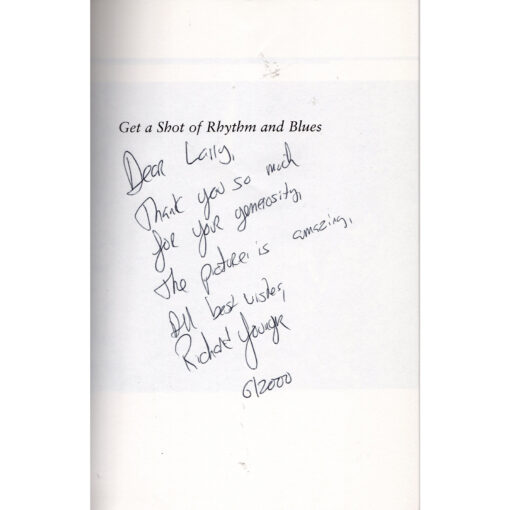 Get a Shot of Rhythm and Blues
Dear Larry,
Thank you so much
for your generosity,
The picture is amazing,
All best wishes,
Richard Younger
6/2000